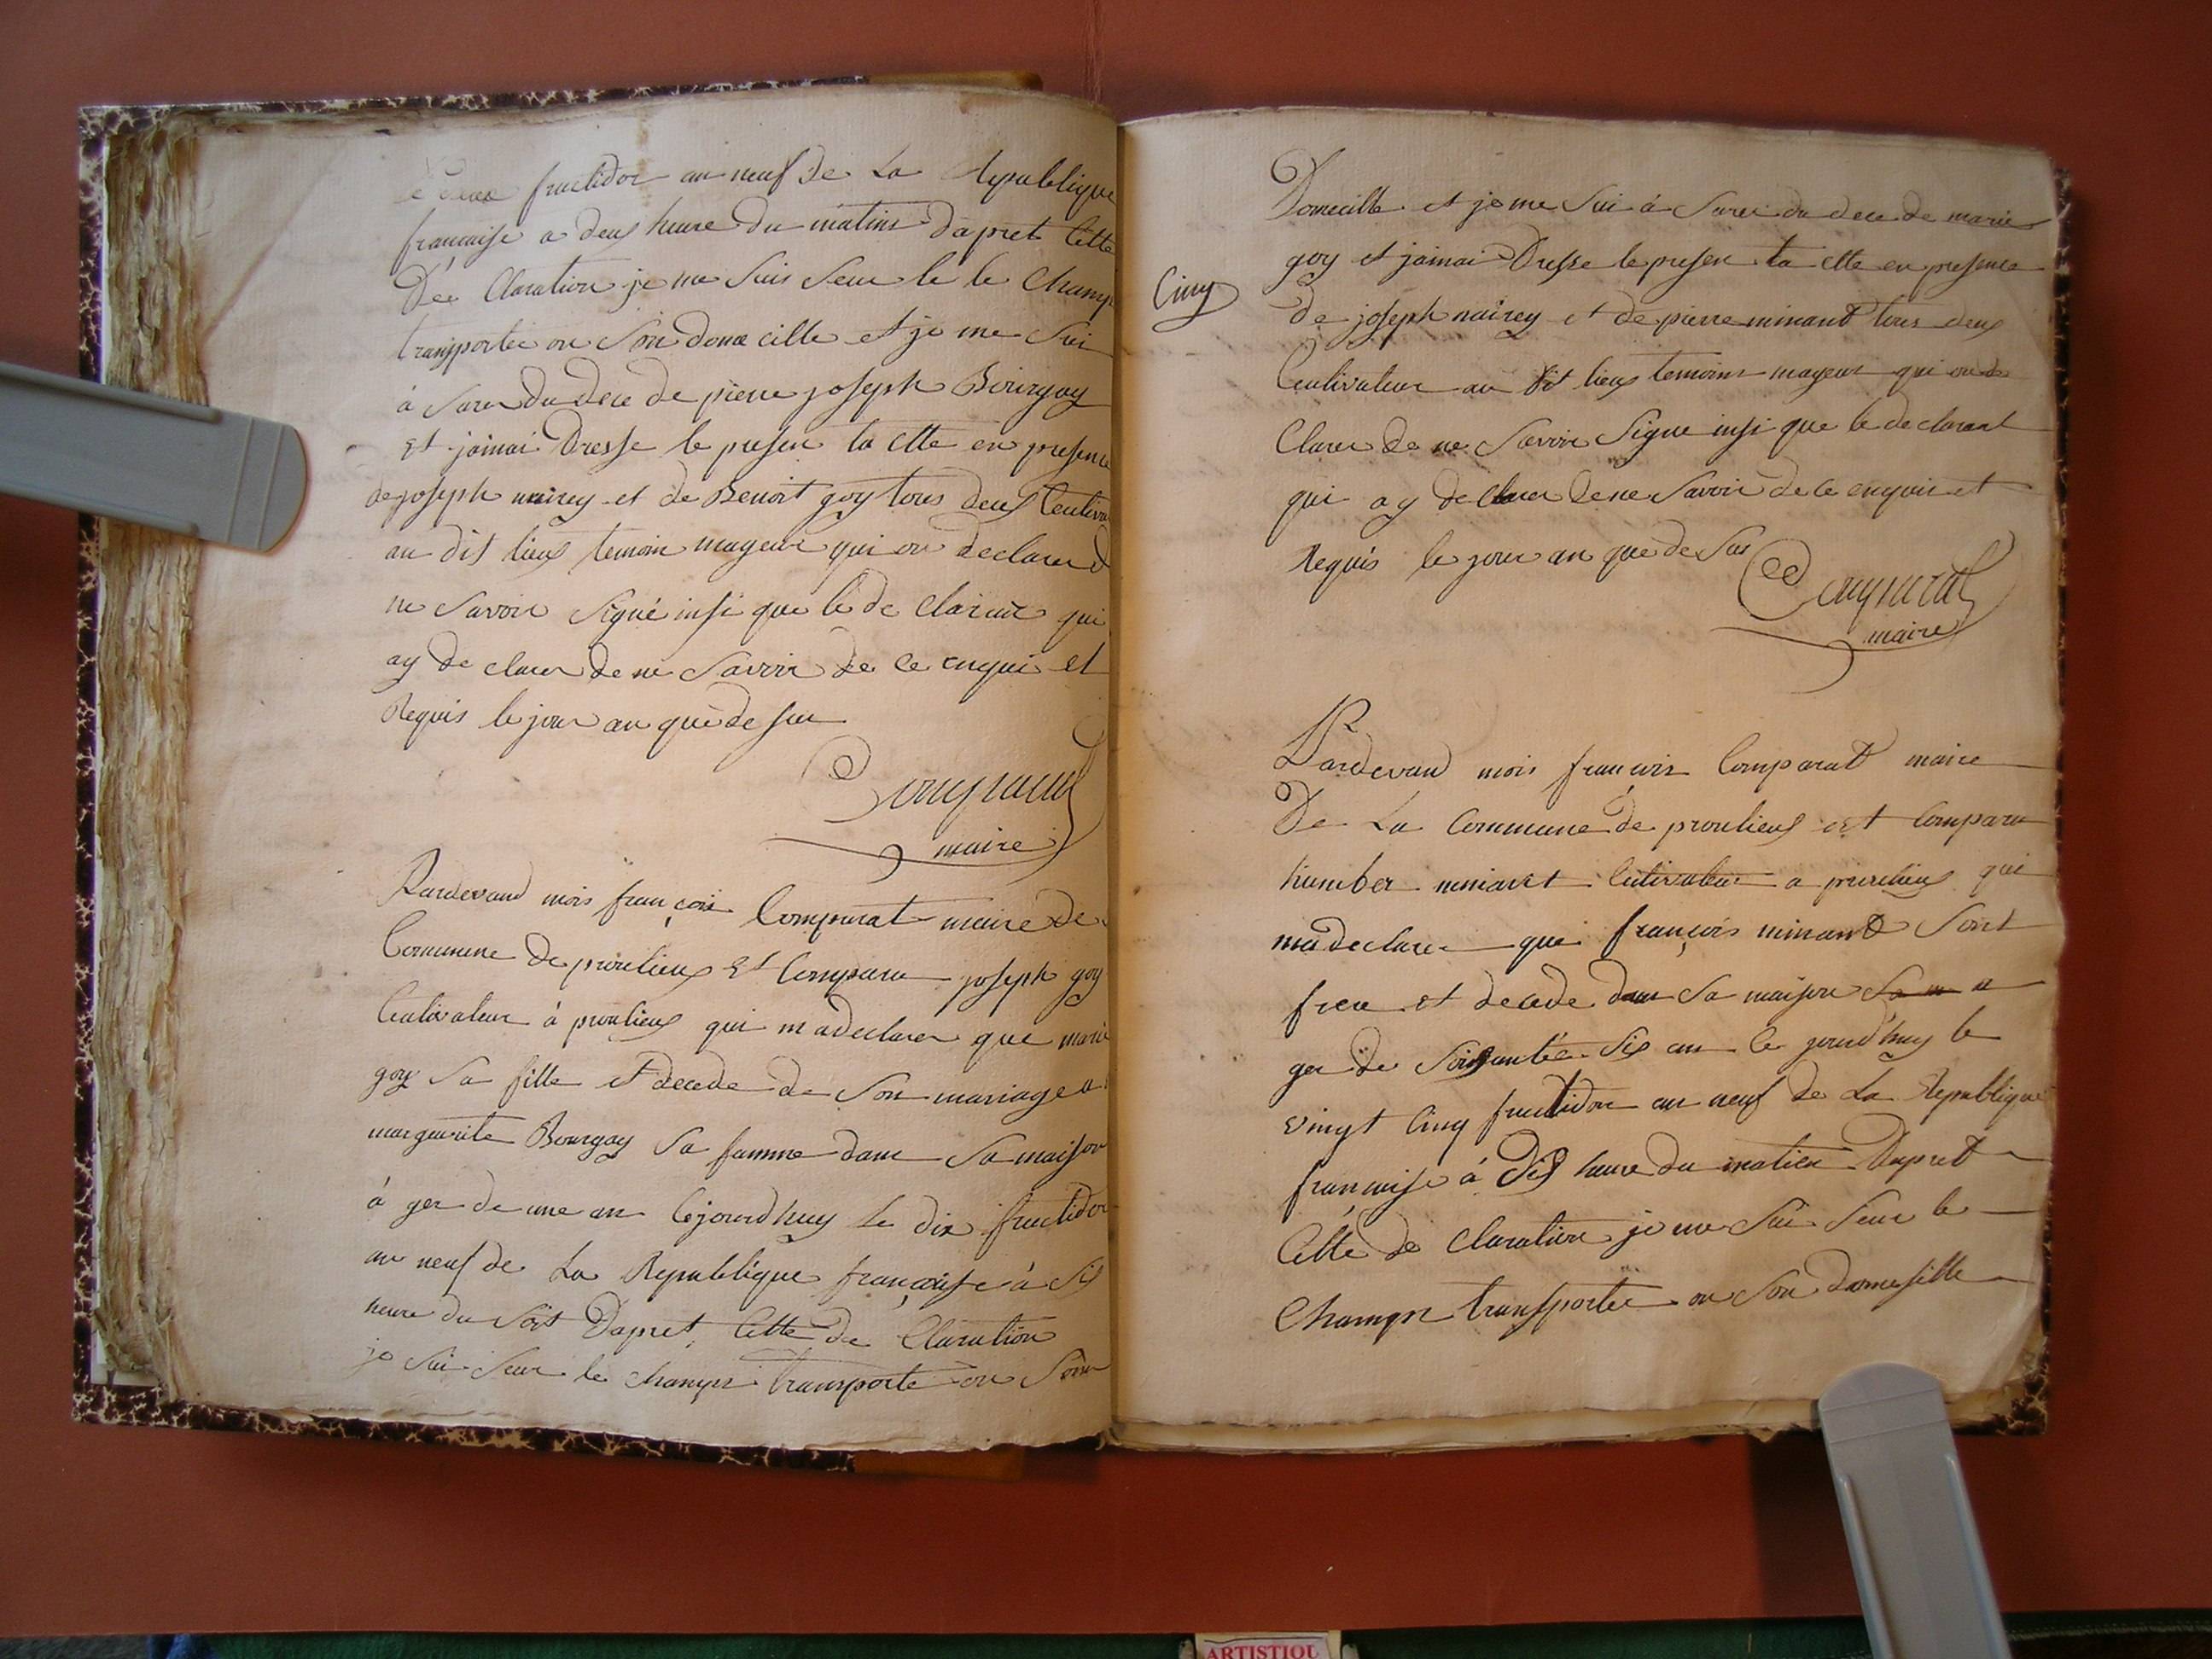 le deux fructidor an neuf de La Republique
francaise a deux heure du matins dapret Cette
Dée Claration je me suis seur le le Champ
transportée on son domecille et je me sui
à surer du dece de pierre joseph Bourgoy
Et jainai Dresse le presen ta Ctte en presence
de joseph nairey et de Benoit goy tous deux Ceutiva
au dit lieux temoin mageur qui on declarer d
ne savoir signé insi que le de clarant qui
ay de clarer de ne savoir de ce enquis et
Requis le jour an que de sur
Comparat
maire
Pardevand mois françois Comparat maire de
Commune de proulieux Et Comparu joseph goy
Ceutivateur à proulieux qui madeclarer que marie
goy sa fille et decede de son mariage a
marguerite Bourgoy sa famme dans sa maison
à ger de une an Cejourdhuy le dix fructidor
an neuf de La Republique françoise à six
heure du soit Dapret Cette de Claration
je sui seur le champs transporte on son
Domecille et je me sui à surer du dece de marie
goy et jainai Dresse le presen ta ctte en presence
Cinq
de joseph nairey et de pierre minant tous deux
Ceutivateur au dit lieux temoins mageur qui on de
Clarer de ne savoir signe insi que le declarant
qui ay declarer de ne savoir de ce enquis et
Requis le jour an que de sus
Comparat
maire
Pardevand mois françois Comparat maire
De La Commune de proulieux est Comparu
humber minant Ceutivateur a proulieux qui
madeclarer que françois minant sont
frere et decede dans sa maison sa m a
ger de soixantée six an ce jourd'huy le
vingt cinq fructidor an neuf de La Republique
francaise à dix heure du matien Dapret
Cette de Claration je me sui seur le
Champs transportée on son domesille